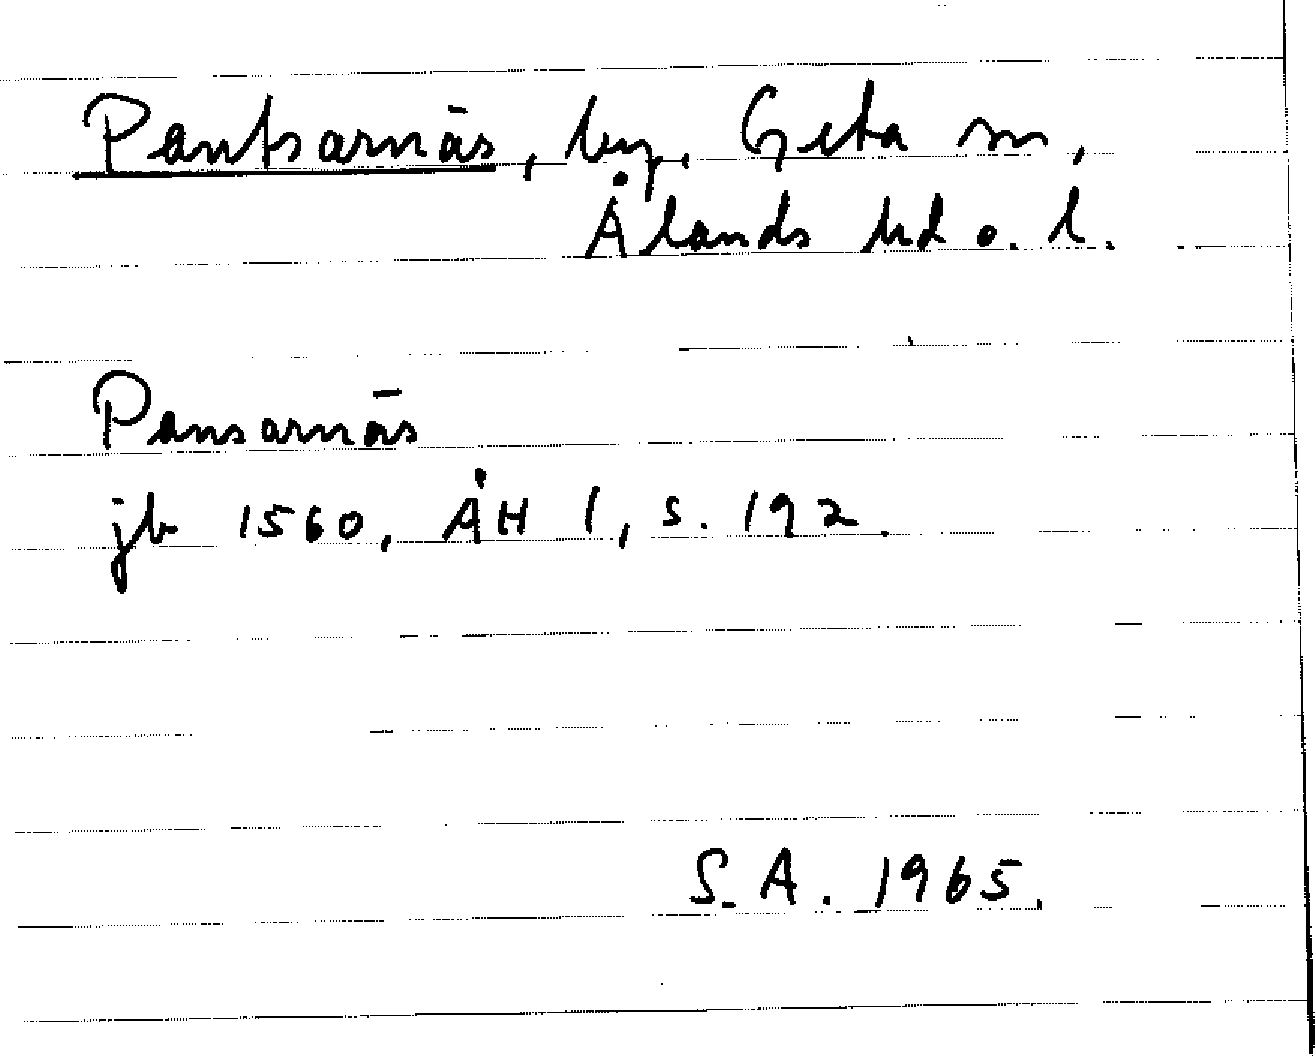 Pantsarnäs, by, Geta sn,
Ålands hd o. l.
Pansarnäs
jb 1560, ÅH 1, s. 192.
S.A. 1965.